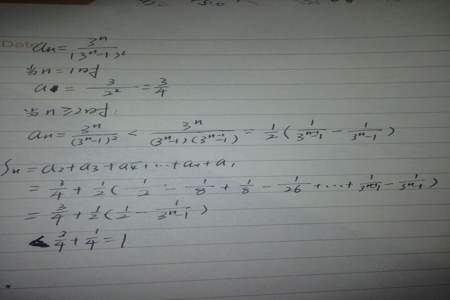 Date
an = 3^n/(3^n-1)^2
当n=1时
a = 3/2^2 = 3/4
当n≥2时:
an = 3^n/(3^n-1)^2 < 3^n/(3^n-1)(3^{n-1}-1) = 1/2(1/(3^{n-1}-1) - 1/(3^n-1))
Sn = a2+a3+a4+...+an+a1
= 3/4 + 1/2(1/2 - 1/8 + 1/8 - 1/26 +...+ 1/(3^{n-1}-1) - 1/(3^n-1))
= 3/4 + 1/2(1/2 - 1/(3^n-1))
< 3/4 + 1/4 = 1